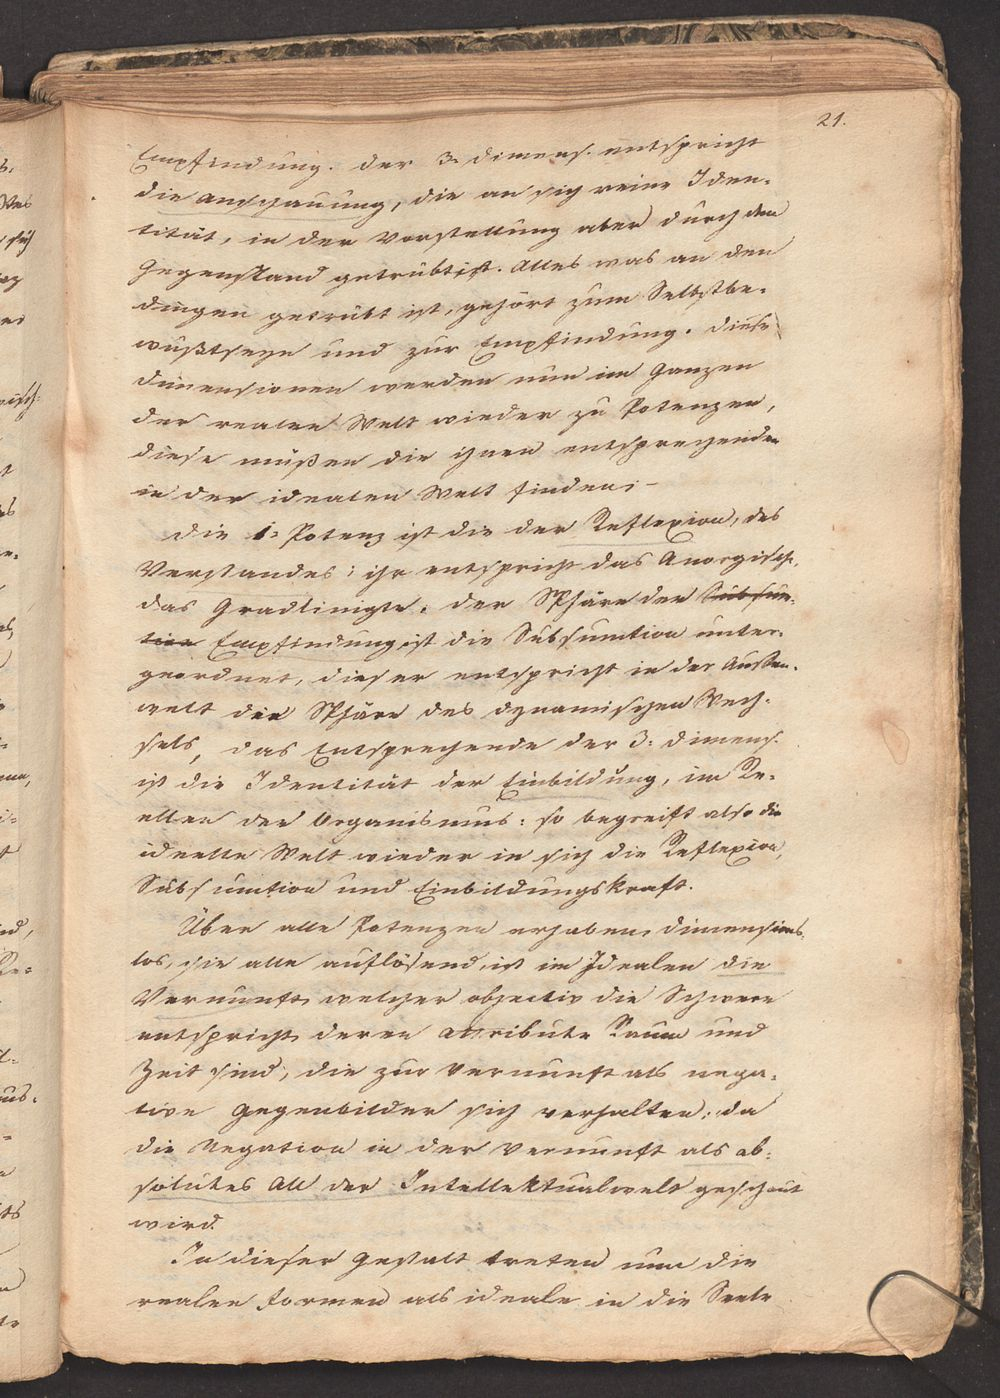 21.
Empfindung. der 3. dimens. entspricht
die Anschauung, die an sich reine Iden-
tität, in der Vorstellung aber durch den
Gegenstand getrübt ist. Alles was an den
dingen getrübt ist, gehört zum Selbstbe-
wußtseyn und zur Empfindung. diese
dimensionen werden nun im Ganzen
der realen Welt wieder zu Potenzen,
diese müßen die ihnen entsprechenden
in der idealen Welt finden: –
die 1: Potenz ist die der Reflexion, des
Verstandes; ihr entspricht das Anorgische,
das Gradlinigte. der Sphäre der Subsum-
tion Empfindung ist die Subsumtion unter-
geordnet, dieser entspricht in der Außen-
welt die Sphäre des dynamischen Wech-
sels, das Entsprechende der 3: dimens.
ist die Identität der Einbildung, im Re-
ellen der Organismus: so begreift also die
ideelle Welt wieder in sich die Reflexion,
Subsumtion und Einbildungskraft.
Über alle Potenzen erhaben, dimensions-
los, sie alle auflösend, ist im Idealen die
Vernunft, welcher objectiv die Schwere
entspricht, deren Attribute Raum und
Zeit sind, die zur Vernunft als nega-
tive Gegenbilder sich verhalten: da
die Negation in der Vernunft als ab-
solutes All der Intellektualwelt geschaut
wird.
In dieser Gestalt treten nun die
realen Formen als ideale in die Seele